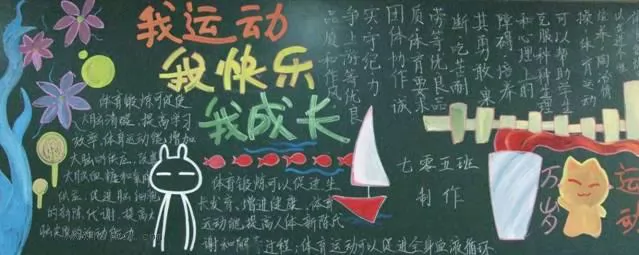 我运动
我快乐
我成长
体育锻炼可促使
大脑清醒、提高学习
效率,体育运动能增加
大脑的供应、
大脑血糖和氧
供应,促进脑细胞
的新陈代谢,提高大
脑 活动能力
体育锻炼可以促进生
长发育,增进健康,体育
运动能提高人体新陈代
谢和 过程;体育运动可以促进全身血液循环
操体育运动
可以帮助学生
克服种种生理
和心理上的
障碍,培养
其勇敢果
断、吃苦耐
劳等优良品
质,体育要求
团体协作、诚
实守纪、力
争上游等优良
品质和作风
七零五班
制作
运动
万岁